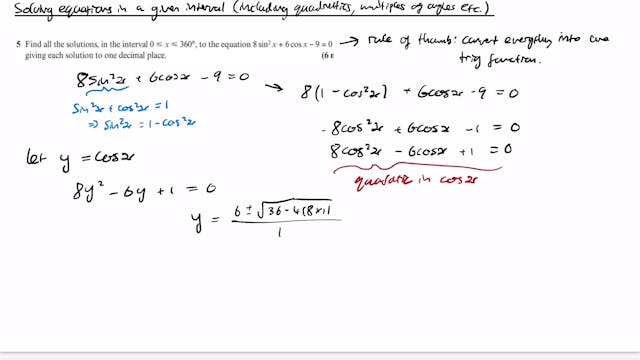 Solving equations in a given interval (including quadratics, multiples of angles etc.)
5 Find all the solutions, in the interval 0 ⩽ x ⩽ 360°, to the equation 8 sin² x + 6 cos x − 9 = 0
giving each solution to one decimal place. (6
→ rule of thumb: convert everything into one
trig function.
8 sin²x + 6cosx − 9 = 0
→ 8(1 − cos²x) + 6cosx − 9 = 0
sin²x + cos²x = 1
⇒ sin²x = 1 − cos²x
-8cos²x + 6cosx − 1 = 0
8cos²x − 6cosx + 1 = 0
quadratic in cosx
let y = cosx
8y² − 6y + 1 = 0
y = 6 ± √36 − 4(8×1)
1